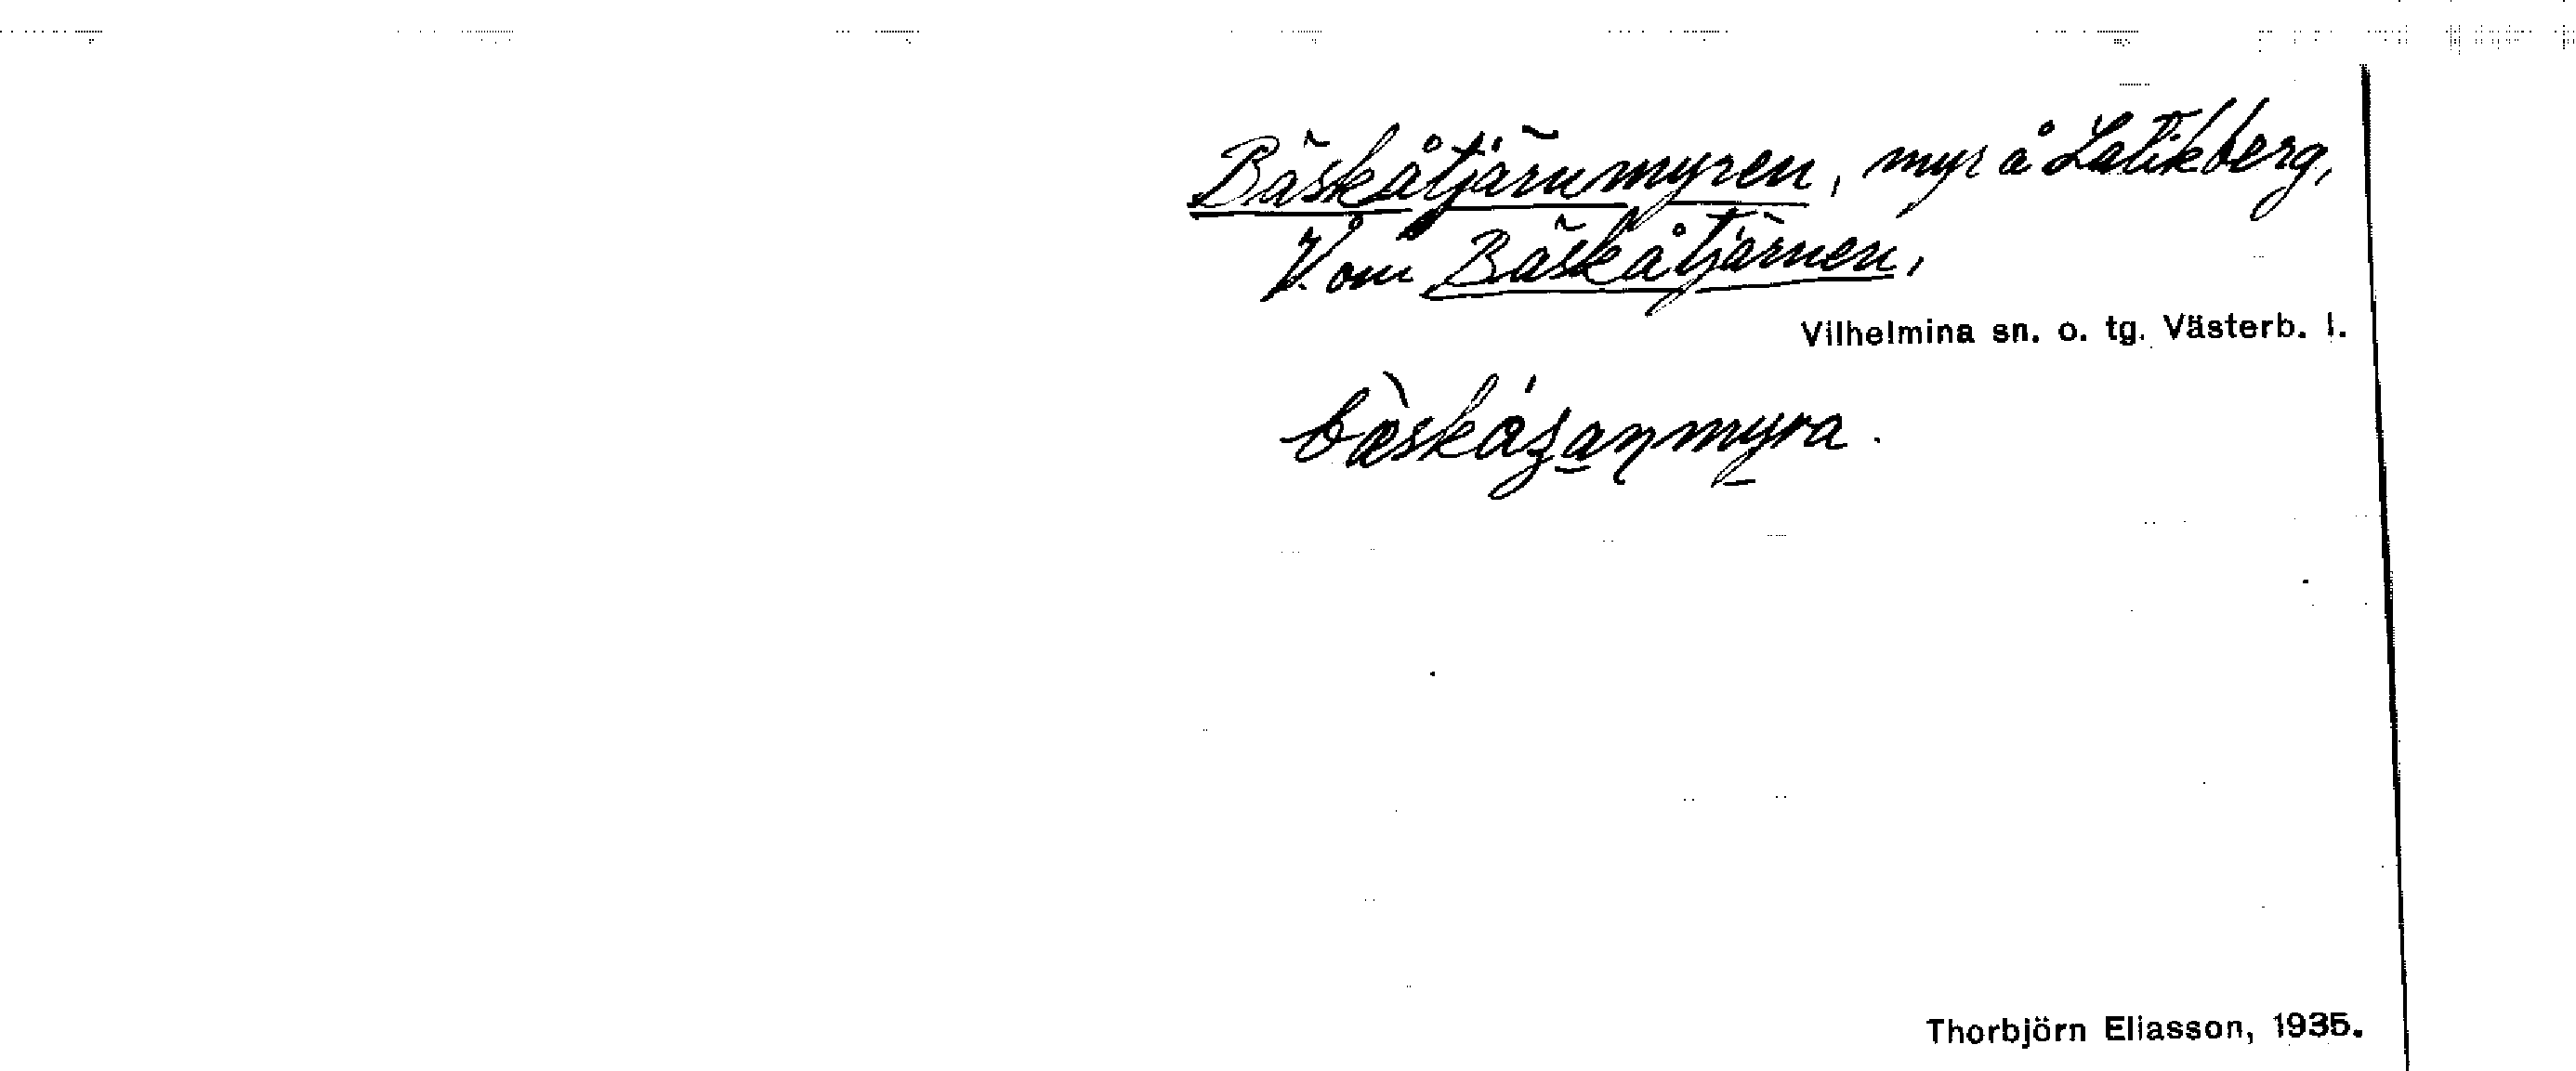 Bäskåtjärnmyren, myr å Latikberg,
V. om Bäskåtjärnen.
Vilhelmina sn. o. tg. Västerb. l.
Thorbjörn Eliasson, 1935.